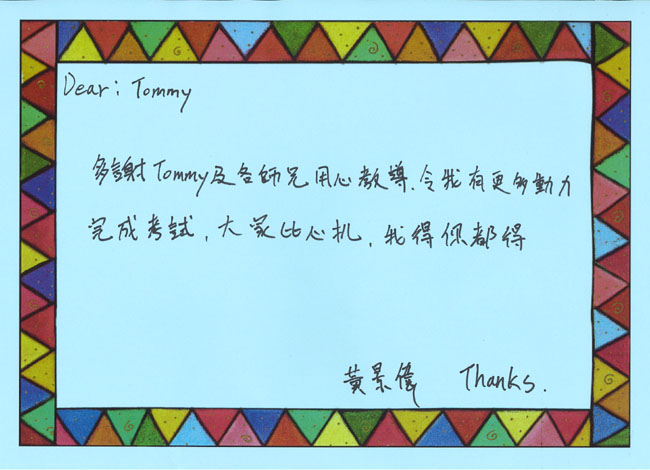 Dear: Tommy
多謝Tommy及各師兄用心教導.令我有更多動力
完成考試，大家比心机，我得你都得
黃景偉 Thanks.